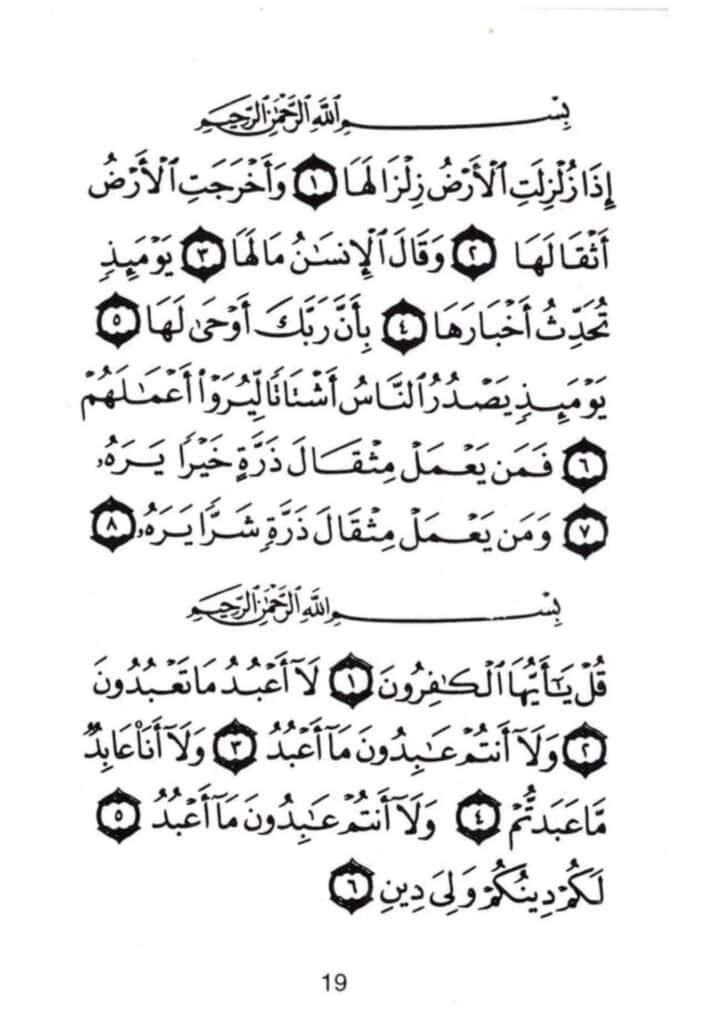 بِسْمِ ٱللَّهِ ٱلرَّحْمَٰنِ ٱلرَّحِيمِ
إِذَا زُلْزِلَتِ ٱلْأَرْضُ زِلْزَالَهَا ١ وَأَخْرَجَتِ ٱلْأَرْضُ
أَثْقَالَهَا ٢ وَقَالَ ٱلْإِنسَٰنُ مَا لَهَا ٣ يَوْمَئِذٍ
تُحَدِّثُ أَخْبَارَهَا ٤ بِأَنَّ رَبَّكَ أَوْحَىٰ لَهَا ٥
يَوْمَئِذٍ يَصْدُرُ ٱلنَّاسُ أَشْتَاتًا لِّيُرَوْا۟ أَعْمَٰلَهُمْ
٦ فَمَن يَعْمَلْ مِثْقَالَ ذَرَّةٍ خَيْرًا يَرَهُۥ
٧ وَمَن يَعْمَلْ مِثْقَالَ ذَرَّةٍ شَرًّا يَرَهُۥ ٨
بِسْمِ ٱللَّهِ ٱلرَّحْمَٰنِ ٱلرَّحِيمِ
قُلْ يَٰٓأَيُّهَا ٱلْكَٰفِرُونَ ١ لَآ أَعْبُدُ مَا تَعْبُدُونَ
٢ وَلَآ أَنتُمْ عَٰبِدُونَ مَآ أَعْبُدُ ٣ وَلَآ أَنَا۠ عَابِدٌ
مَّا عَبَدتُّمْ ٤ وَلَآ أَنتُمْ عَٰبِدُونَ مَآ أَعْبُدُ ٥
لَكُمْ دِينُكُمْ وَلِىَ دِينِ ٦
19